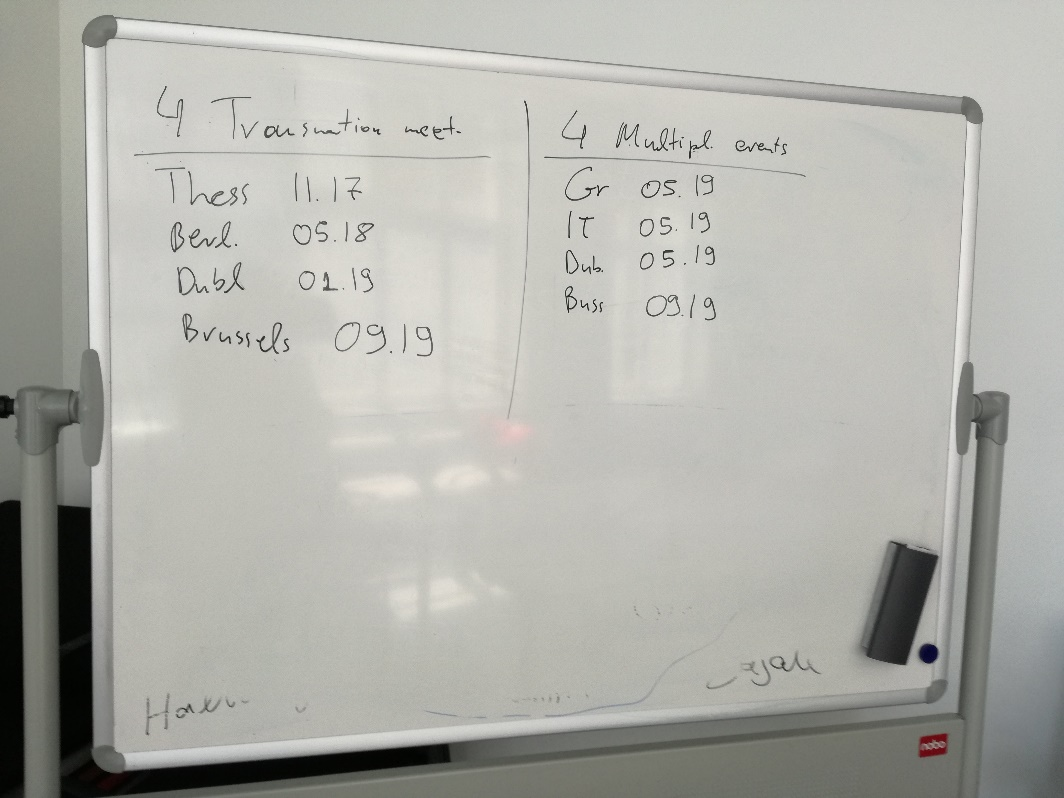 4 Transnation meet.
Thess 11.17
Berl. 05.18
Dubl 01.19
Brussels 09.19
4 Multipl. events
Gr 05.19
IT 05.19
Dub. 05.19
Buss 09.19
nobo